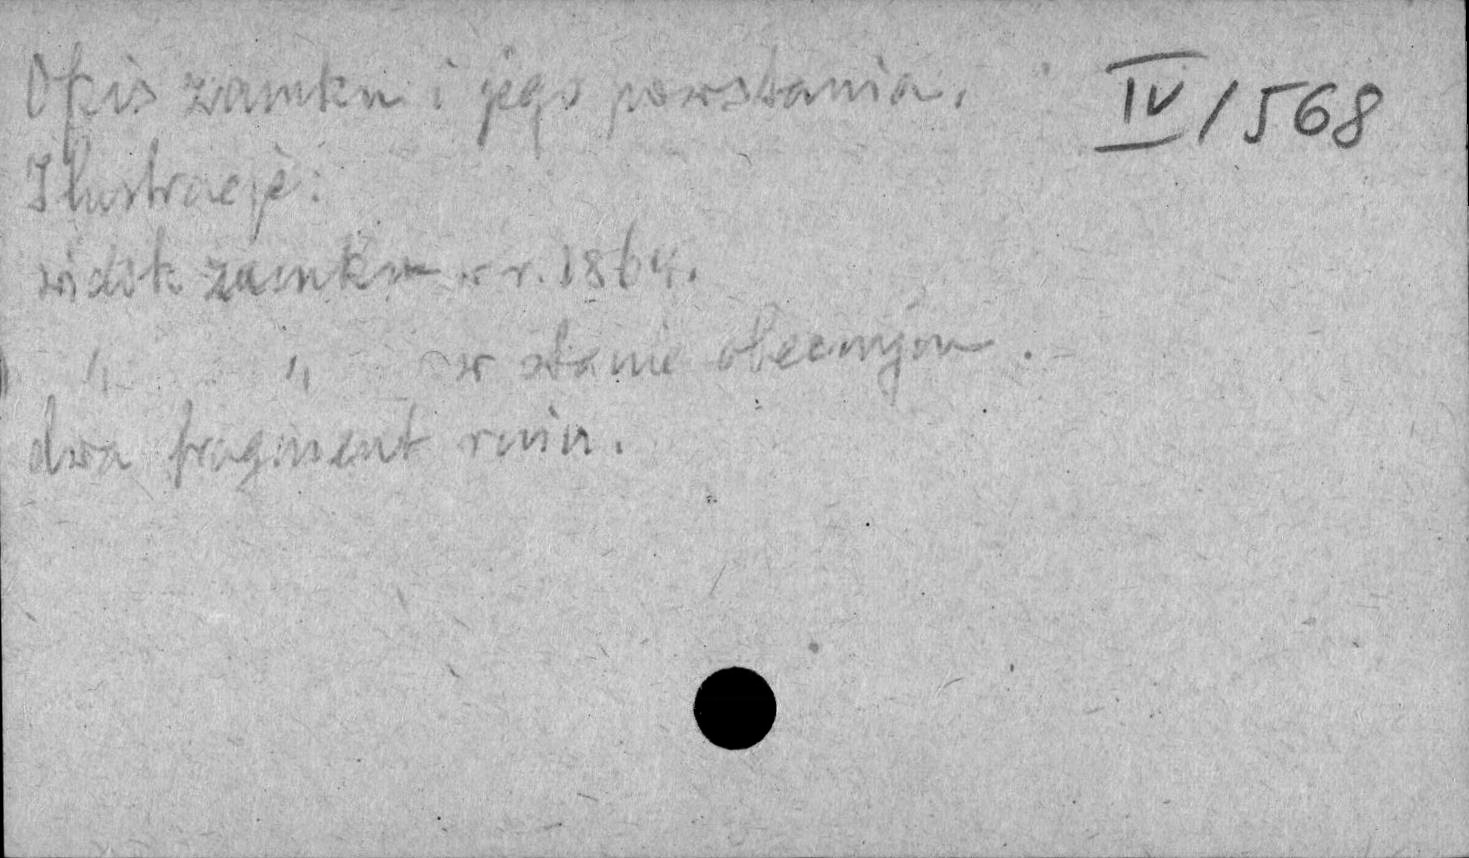 Opis zamku i jego powstania. IV/568
Ilustracje:
widok zamku w r. 1864.
" " w stanie obecnym.
dwa fragment ruin.